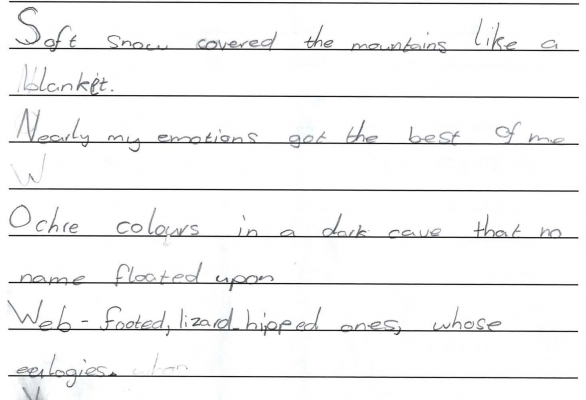 Soft snow covered the mountains like a
blanket.
Nearly my emotions got the best of me
W
Ochre colours in a dark cave that no
name floated upon
Web-footed, lizard-hipped ones, whose
eulogies.